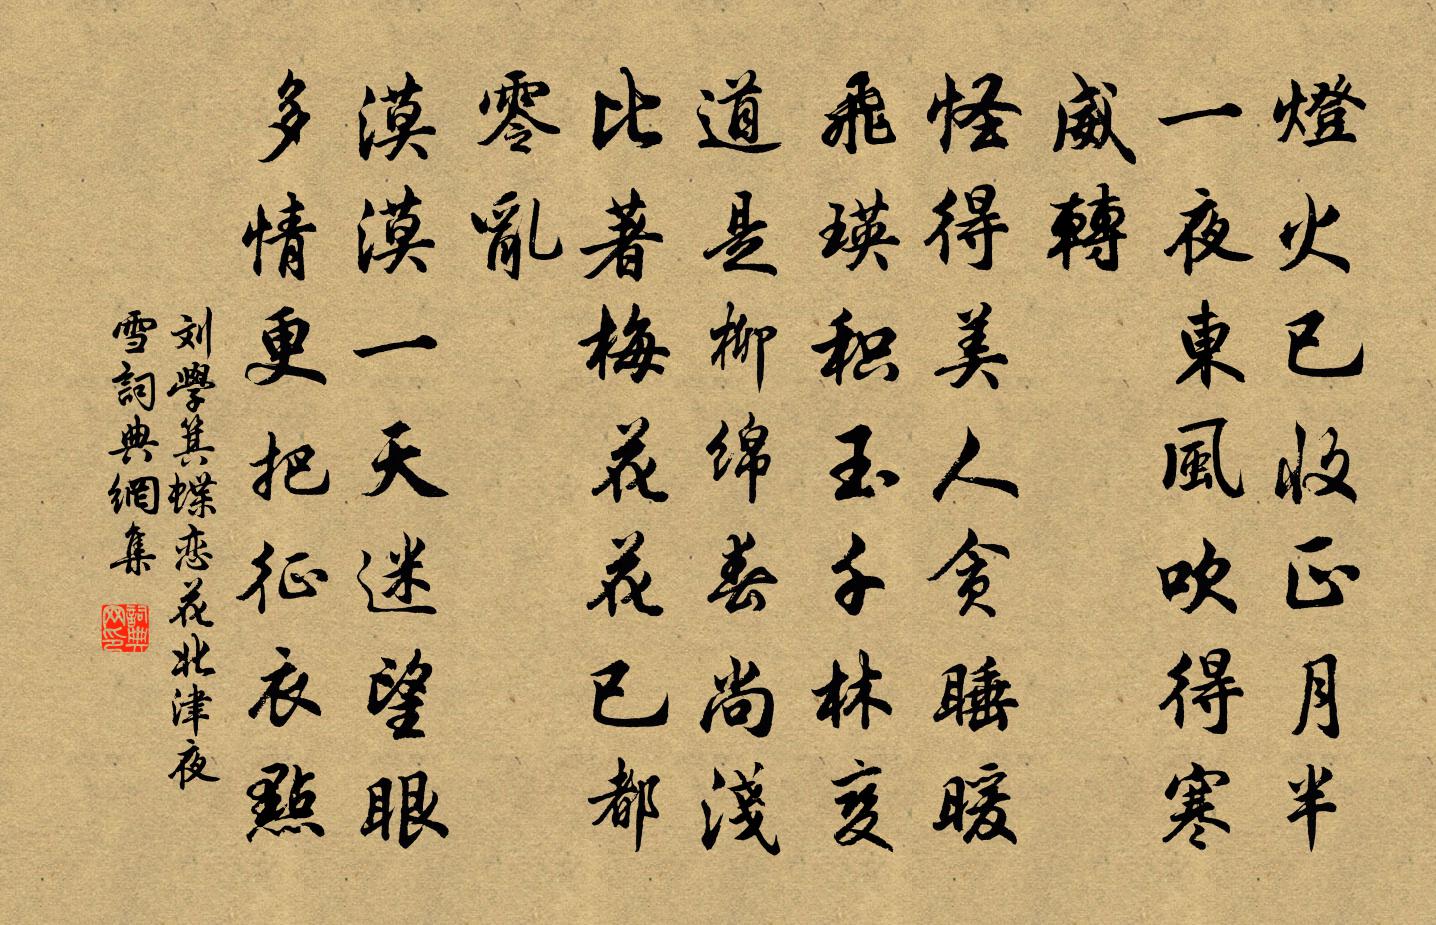 燈火已收正月半
一夜東風吹得寒
威轉
怪得美人貪睡暖
飛瑛积玉千林变
道是柳绵春尚淺
比著梅花花已都
零亂
漠漠一天迷望眼
多情更把征衣點
刘學箕蝶恋花北津夜
雪詞典網集
詞典网印